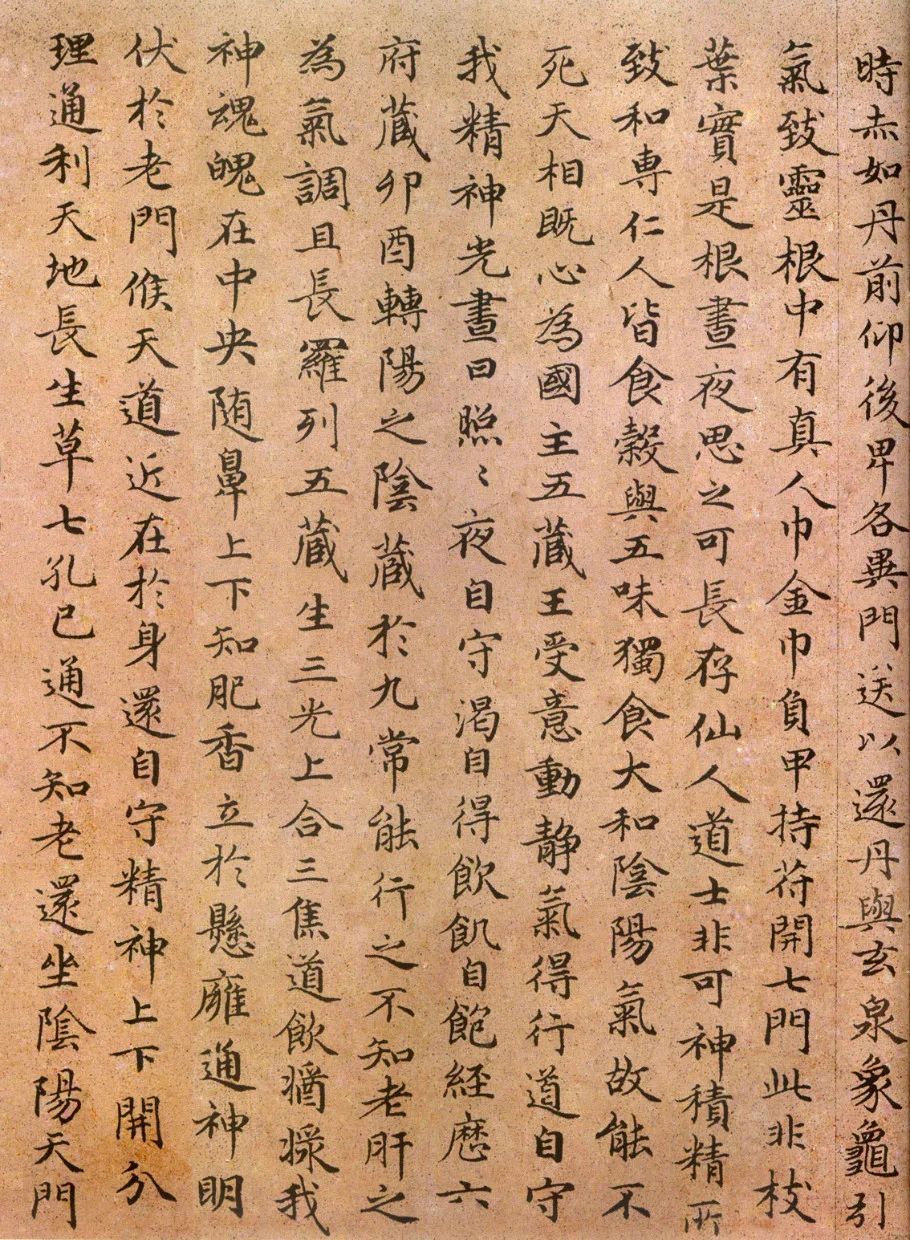 時赤如丹前仰後卑各異門送以還丹與玄泉象龜引
氣致靈根中有真人巾金巾負甲持苻開七門此非枝
葉實是根晝夜思之可長存仙人道士非可神積精所
致和専仁人皆食榖與五味獨食大和陰陽氣故能不
死天相既心為國主五藏王受意動静氣得行道自守
我精神光晝日照〻夜自守渴自得飲飢自飽経歷六
府藏卯酉轉陽之陰藏於九常能行之不知老肝之
為氣調且長羅列五藏生三光上合三焦道飲漿我
神魂魄在中央随鼻上下知肥香立於懸廱通神明
伏於老門候天道近在於身還自守精神上下開分
理通利天地長生草七孔已通不知老還坐陰陽天門